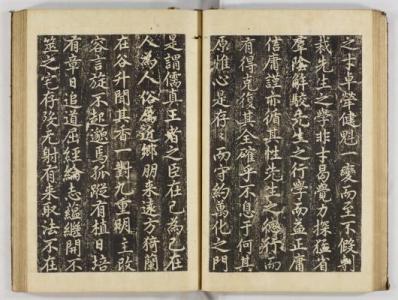 之才卓犖健魁一變而至不假
哉先生之學非子易覺力探猛省
羣陰解駮先生之行學而益正庸
信庸謹亦循其性先生之德行而
有得克復其全確乎不息于何其
原惟心是存存而守約萬化之門
是謂儒真王者之臣在己為己在
人為人俗近鄉朋来遠方猗蘭
在谷升聞其香一對九重明主改
容言旋不起邈焉孤蹤有植日培
有章日追道屈經綸志繼開不
筮之宅存歿无射有来取法不在